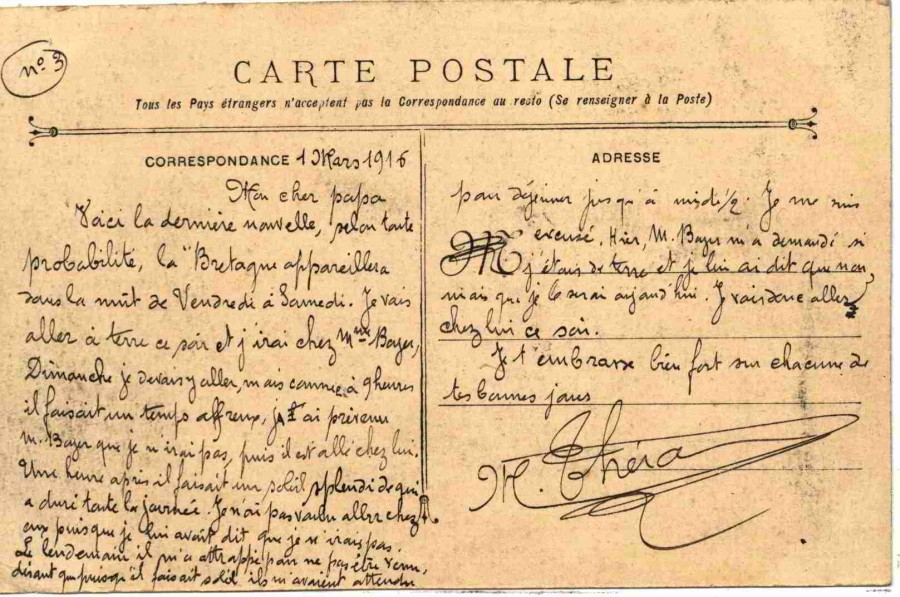 n° 3
CARTE POSTALE
Tous les Pays étrangers n'acceptent pas la Correspondance au recto (Se renseigner à la Poste)
CORRESPONDANCE 1 Mars 1916
Mon cher papa
Voici la dernière nouvelle, selon toute
probabilité, la "Bretagne appareillera
dans la nuit de Vendredi à Samedi. Je vais
aller à terre ce soir et j'irai chez Mme Bayer,
Dimanche je devais y aller, mais comme à 9 heures
il faisait un temps affreux, j'ai prévenu
M. Bayer que je n'irai pas, puis il est allé chez lui.
Une heure après il faisait un soleil splendide qui
a duré toute la journée. Je n'ai pas voulu aller chez
eux puisque je lui avait dit que je n'irais pas.
Le lendemain il m'a attrappé pour ne pas être venu,
disant que puisqu'il faisait soleil ils m'avaient attendu
ADRESSE
pour déjeuner jusqu'à midi 1/2. Je me suis
excusé. Hier, M. Bayer m'a demandé si
M j'étais de terre et je lui ai dit que non,
mais que je le serai aujourd'hui. Je vais donc aller
chez lui ce soir.
Je t'embrasse bien fort sur chacune de
tes bonnes joues
M. Théra